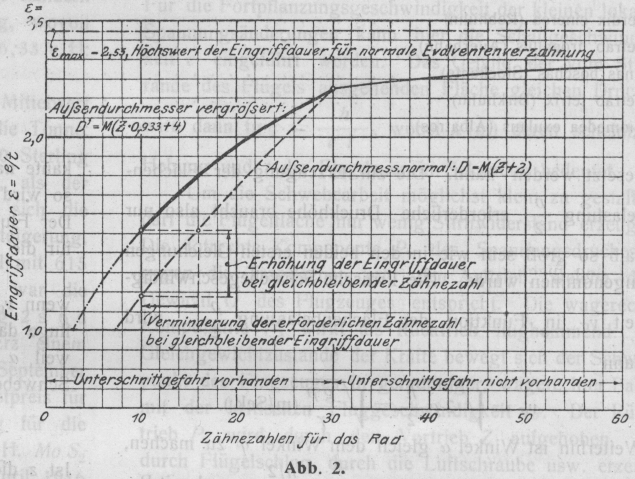 ε=
,5
εmax = 2,53, Höchstwert der Eingriffdauer für normale Evolventenverzahnung
Außendurchmesser vergrößert:
D' = M(Z·0,933+4)
2,0
Außendurchmess. normal: D = M(Z+2)
Eingriffdauer ε = e/t
Erhöhung der Eingriffdauer
bei gleichbleibender Zähnezahl
1,0
Verminderung der erforderlichen Zähnezahl
bei gleichbleibender Eingriffdauer
Unterschnittgefahr vorhanden
Unterschnittgefahr nicht vorhanden
0 10 20 30 40 50 60
Zähnezahlen für das Rad
Abb. 2.